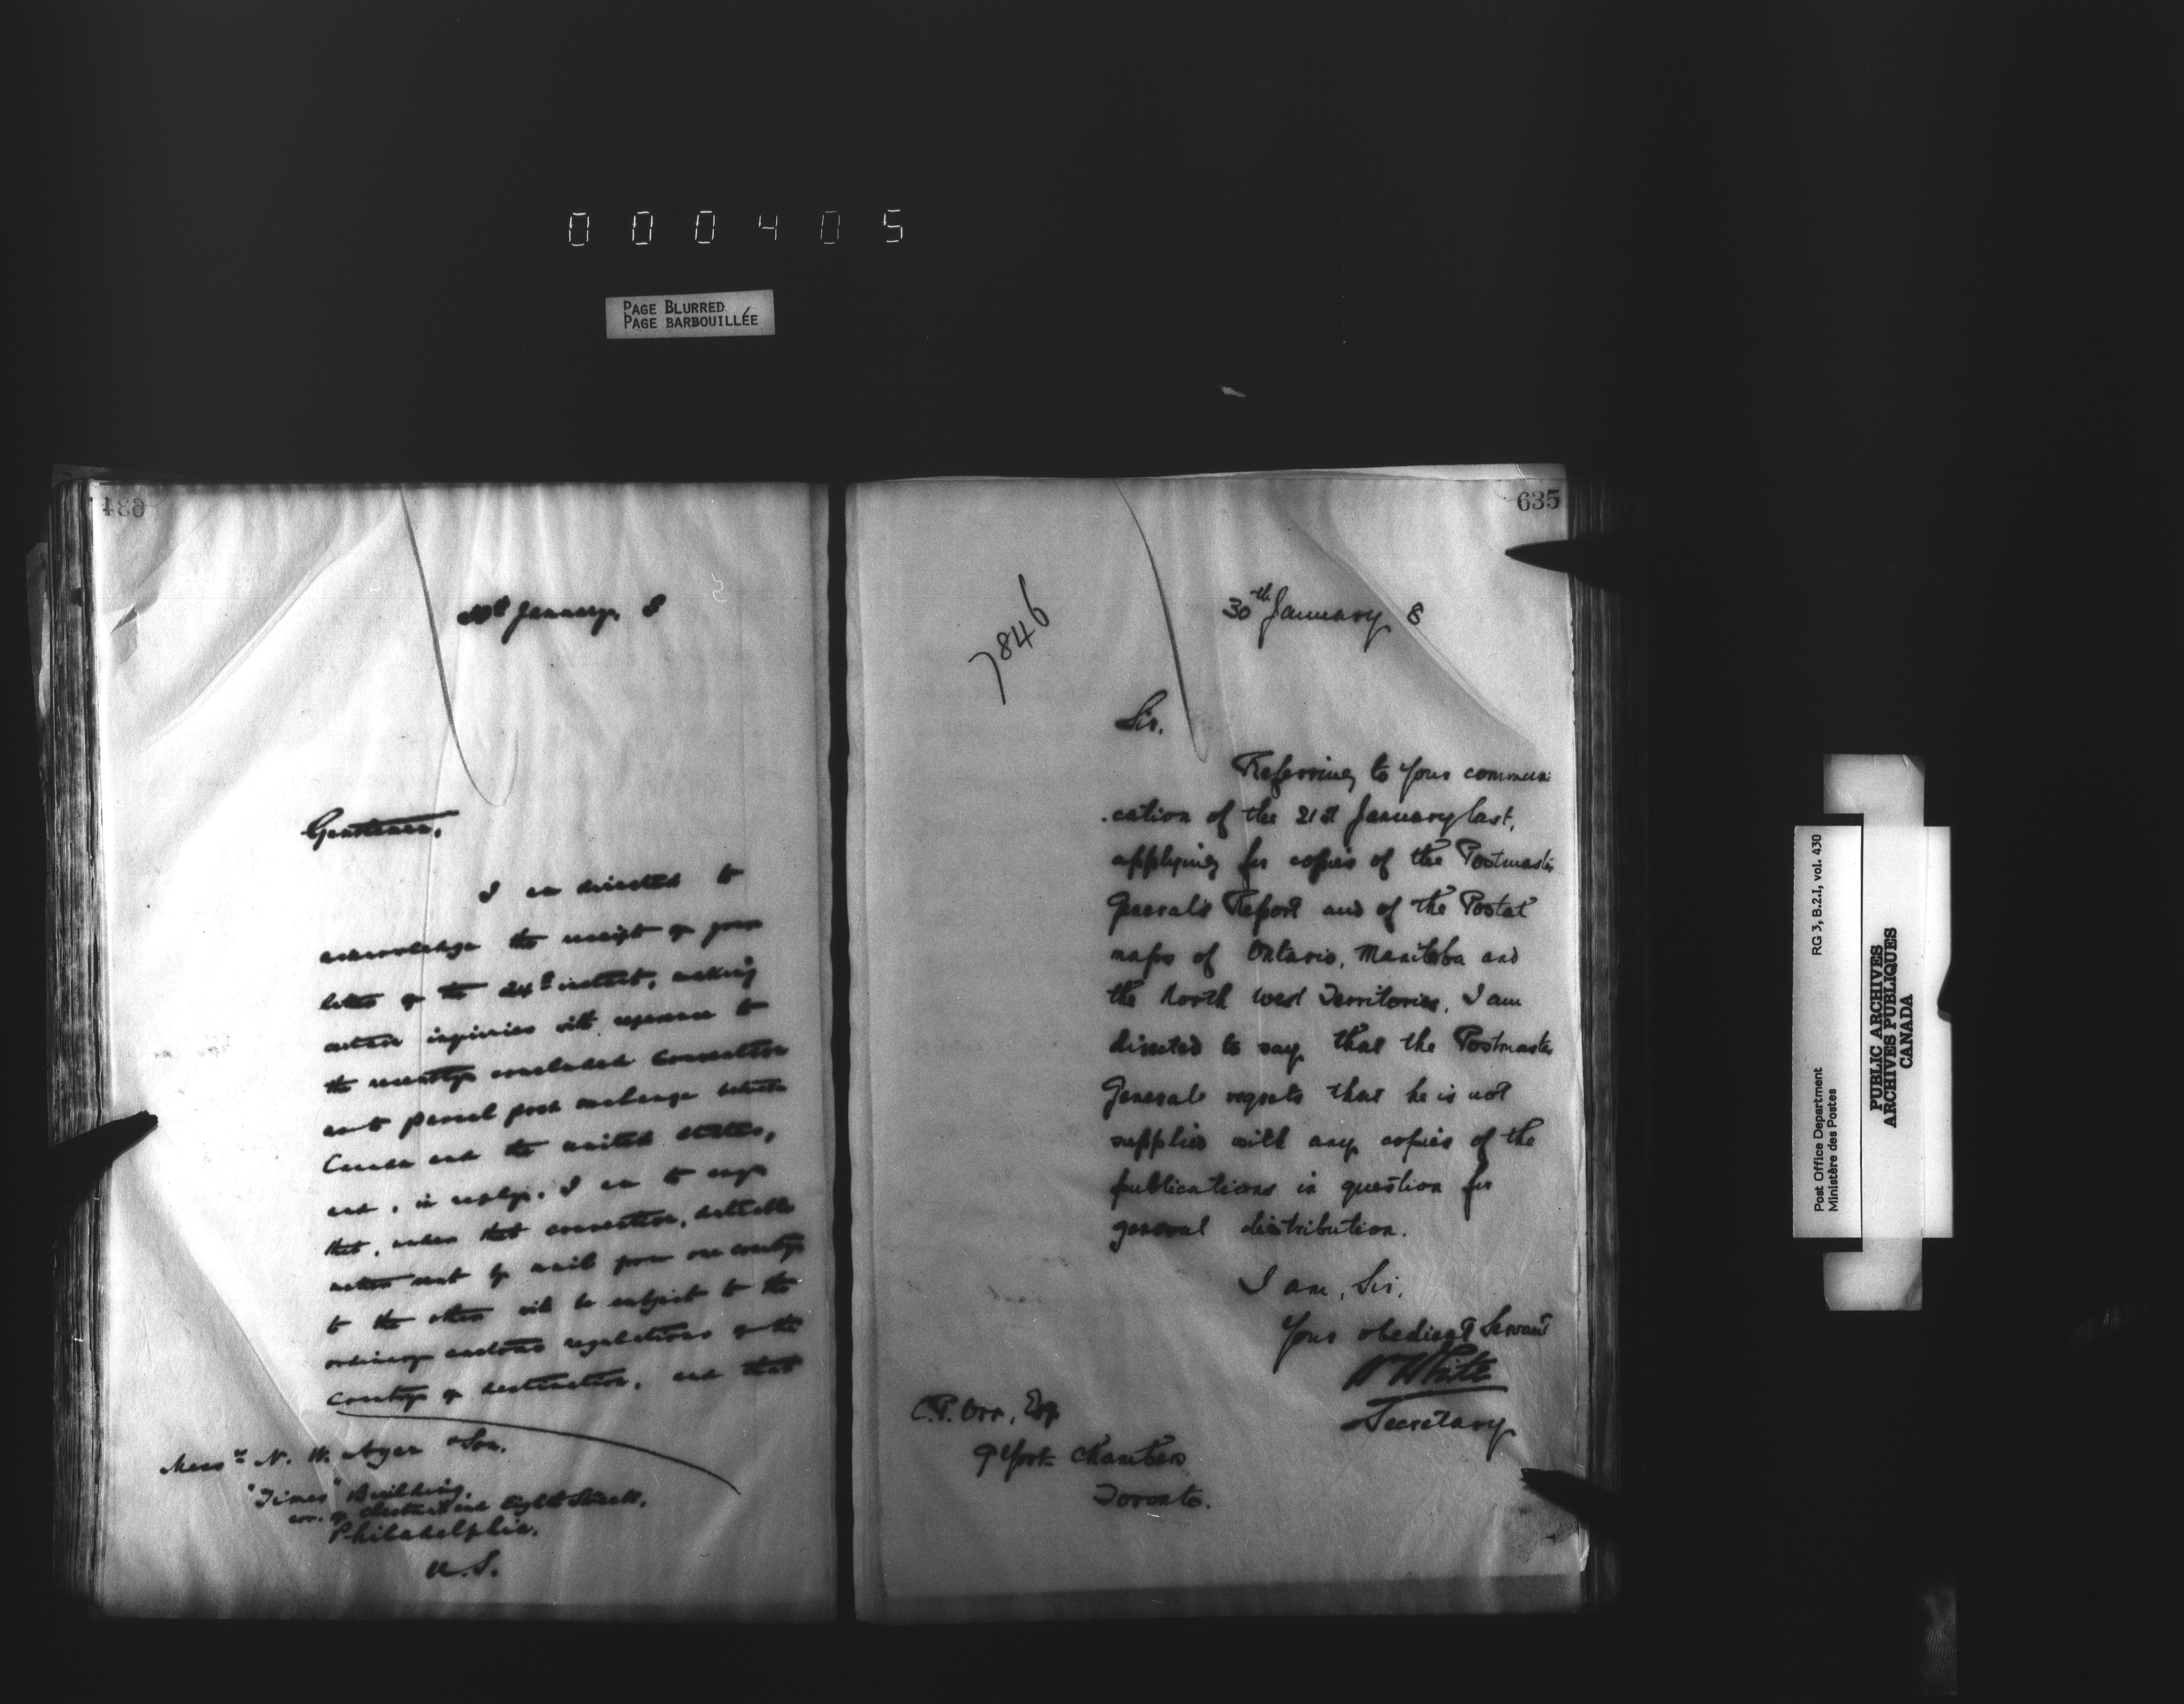 000405
PAGE BLURRED
PAGE BARBOUILLÉE
634
January, 8
Gentlemen,
I am directed to
acknowledge the receipt of your
letter of the 24th instant, making
certain inquiries with reference to
the recently concluded Convention
as to parcel post exchange between
Canada and the United States,
and, in reply, I am to say
that, under that convention, dutiable
matter sent by mail from one country
to the other will be subject to the
ordinary customs regulations of the
country of destination, and that
Messrs N. W. Ayer & Son,
"Times" Building,
cor. of Chestnut and Eighth Streets,
Philadelphia,
U.S.
635
7846
30th January 8
Sir,
Referring to your communi
-cation of the 21st January last,
applying for copies of the Postmaster
General's Report and of the Postal
maps of Ontario, Manitoba and
the North West Territories, I am
directed to say that the Postmaster
General regrets that he is not
supplied with any copies of the
publications in question for
general distribution.
I am, Sir,
Your obedient Servant
W White
Secretary
C.P. Orr, Esq
9 York Chambers
Toronto.
Post Office Department
Ministère des Postes
RG 3, B.2.1, vol. 430
PUBLIC ARCHIVES
ARCHIVES PUBLIQUES
CANADA